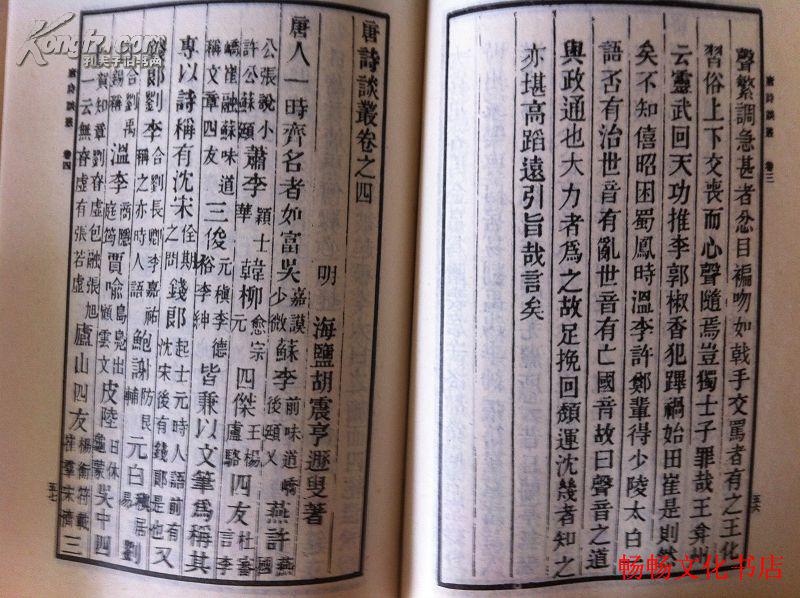 唐詩談叢 卷三
聲繁調急甚者忿目褊吻如戟手交罵者有之王化
習俗上下交喪而心聲隨焉豈獨士子罪哉王弇州
云靈武回天功推李郭椒香犯蹕禍始田崔是則然
矣不知僖昭困蜀鳳時溫李許鄭輩得少陵太白
語否有治世音有亂世音有亡國音故曰聲音之道
與政通也大力者為之故足挽回頹運沈幾者知之
亦堪高蹈遠引旨哉言矣
五六
唐詩談叢卷之四
明 海鹽胡震亨遯叟著
唐人一時齊名者如富吳嘉謨少微蘇李前味道嶠後頲乂燕許燕國
公張說小許公蘇頲蕭李穎士華韓柳愈宗元四傑王楊盧駱四友杜審言李
嶠崔融蘇味道稱文章四友三俊元稹李德裕李紳皆兼以文筆為稱其
專以詩稱有沈宋佺期之問錢郎起士元時人語前有沈宋後有錢郎是也又
錢郎劉李合劉長卿李嘉祐稱之亦時人語鮑謝防良輔元白稹居易劉
白合劉禹錫稱溫李庭筠商隱賈喻島鳧出顧雲文皮陸日休龜蒙吳中四
士賀知章劉眘虛包融張旭一云無眘虛有張若虛廬山四友楊衡符載崔羣宋濟三
唐詩談叢 卷四
五七
孔夫子旧书网
畅畅文化书店